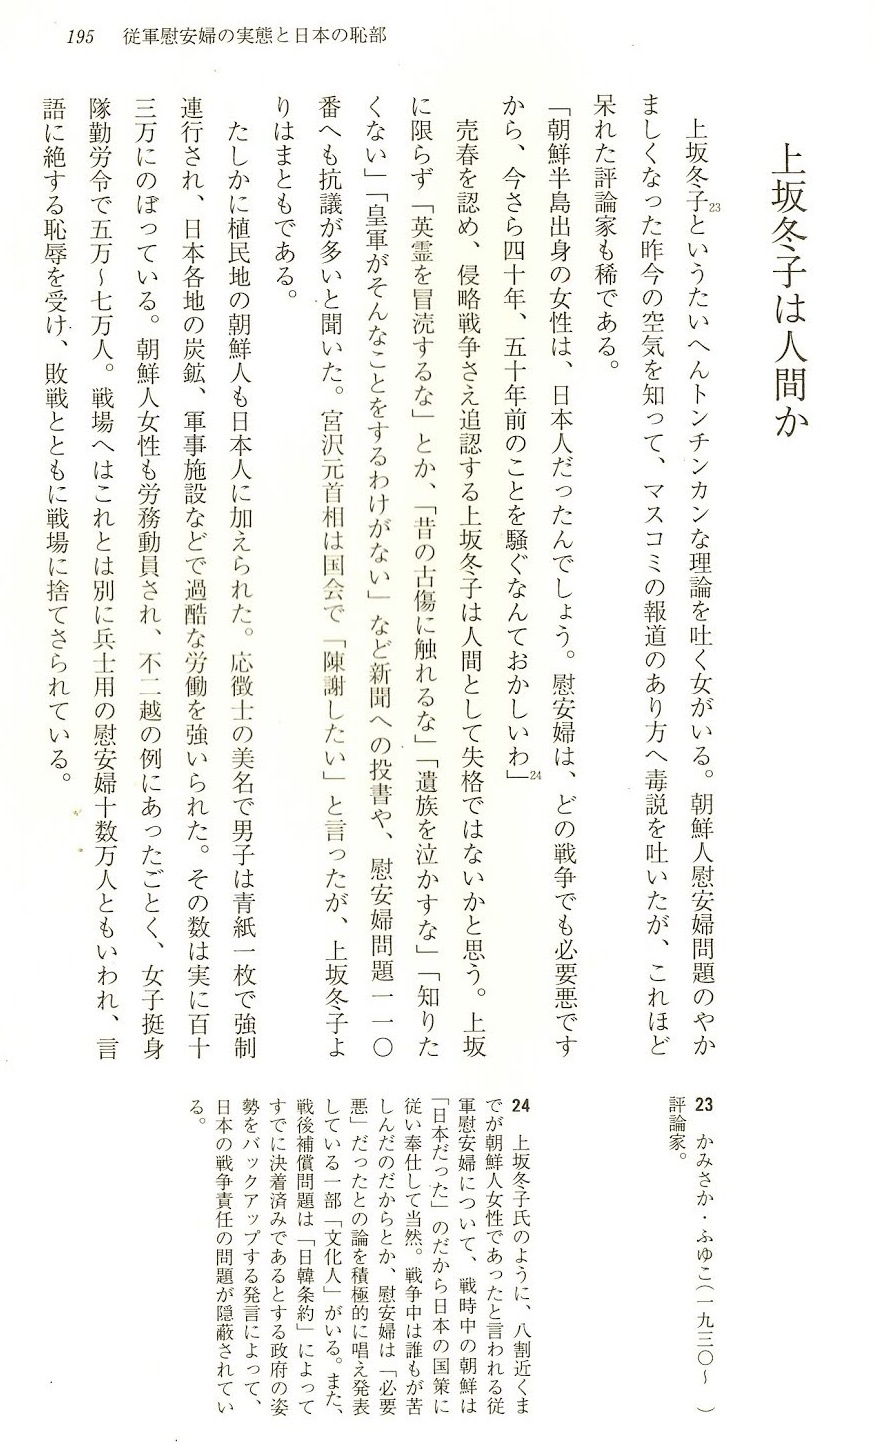 195 従軍慰安婦の実態と日本の恥部
上坂冬子は人間か
上坂冬子23というたいへんトンチンカンな理論を吐く女がいる。朝鮮人慰安婦問題のやか
ましくなった昨今の空気を知って、マスコミの報道のあり方へ毒説を吐いたが、これほど
呆れた評論家も稀である。
「朝鮮半島出身の女性は、日本人だったんでしょう。慰安婦は、どの戦争でも必要悪です
から、今さら四十年、五十年前のことを騒ぐなんておかしいわ」24
売春を認め、侵略戦争さえ追認する上坂冬子は人間として失格ではないかと思う。上坂
に限らず「英霊を冒涜するな」とか、「昔の古傷に触れるな」「遺族を泣かすな」「知りた
くない」「皇軍がそんなことをするわけがない」など新聞への投書や、慰安婦問題一一〇
番へも抗議が多いと聞いた。宮沢元首相は国会で「陳謝したい」と言ったが、上坂冬子よ
りはまともである。
たしかに植民地の朝鮮人も日本人に加えられた。応徴士の美名で男子は青紙一枚で強制
連行され、日本各地の炭鉱、軍事施設などで過酷な労働を強いられた。その数は実に百十
三万にのぼっている。朝鮮人女性も労務動員され、不二越の例にあったごとく、女子挺身
隊勤労令で五万〜七万人。戦場へはこれとは別に兵士用の慰安婦十数万人ともいわれ、言
語に絶する恥辱を受け、敗戦とともに戦場に捨てさられている。
23 かみさか・ふゆこ(一九三〇〜 )
評論家。
24 上坂冬子氏のように、八割近くま
でが朝鮮人女性であったと言われる従
軍慰安婦について、戦時中の朝鮮は
「日本だった」のだから日本の国策に
従い奉仕して当然。戦争中は誰もが苦
しんだのだからとか、慰安婦は「必要
悪」だったとの論を積極的に唱え発表
している一部「文化人」がいる。また、
戦後補償問題は「日韓条約」によって
すでに決着済みであるとする政府の姿
勢をバックアップする発言によって、
日本の戦争責任の問題が隠蔽されてい
る。